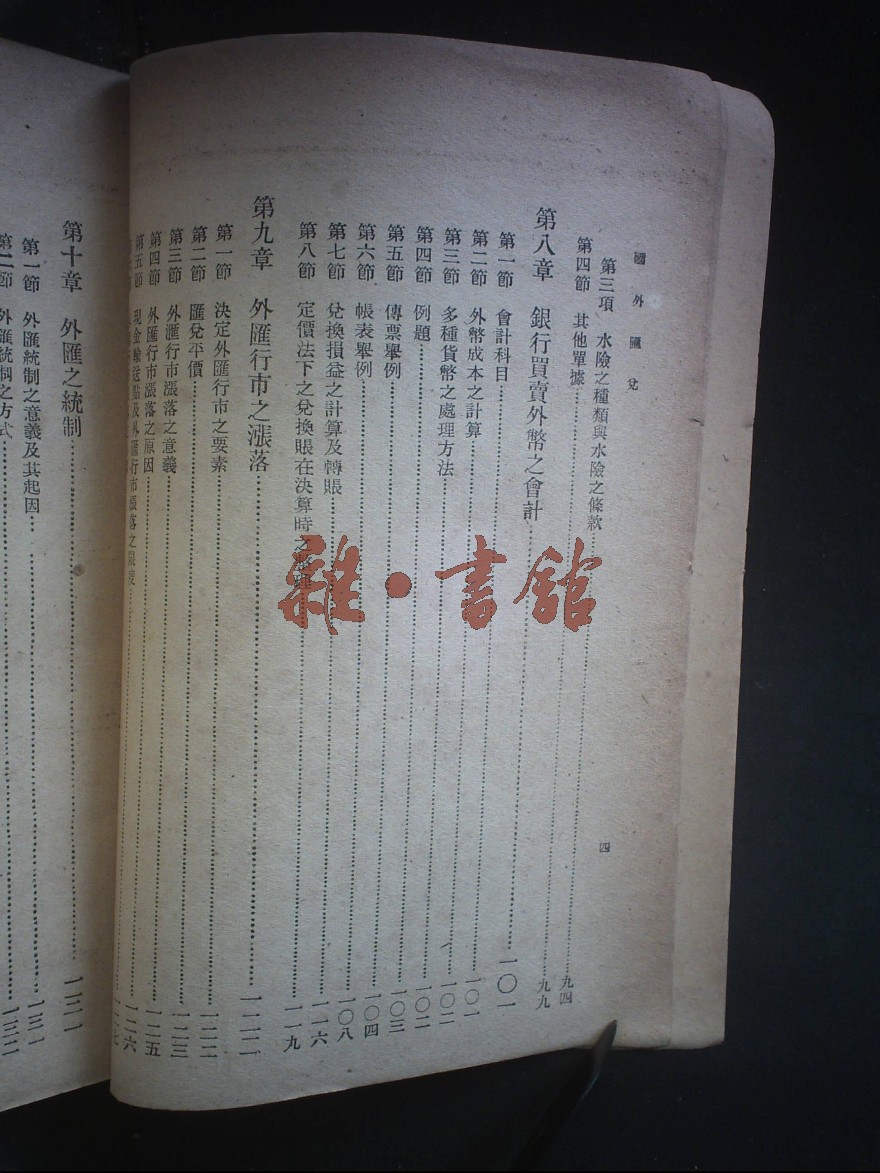 國外匯兌
四
第三項 水險之種類與水險之條款……九四
第四節 其他單據……九九
第八章 銀行買賣外幣之會計……一〇一
第一節 會計科目
第二節 外幣成本之計算……一〇一
第三節 多種貨幣之處理方法……一〇二
第四節 例題……一〇二
第五節 傳票舉例……一〇三
第六節 帳表舉例……一〇四
第七節 兌換損益之計算及轉賬……一〇八
第八節 定價法下之兌換賬在決算時之……一一六
一一九
第九章 外匯行市之漲落……一二二
第一節 決定外匯行市之要素……一二二
第二節 匯兌平價……一二三
第三節 外匯行市漲落之意義……一二五
第四節 外匯行市漲落之原因……一二六
第五節 現金輸送點及外匯行市漲落之限度……一二七
第十章 外匯之統制……一三一
第一節 外匯統制之意義及其起因……一三一
第二節 外匯統制之方式……一三二
雜·書館